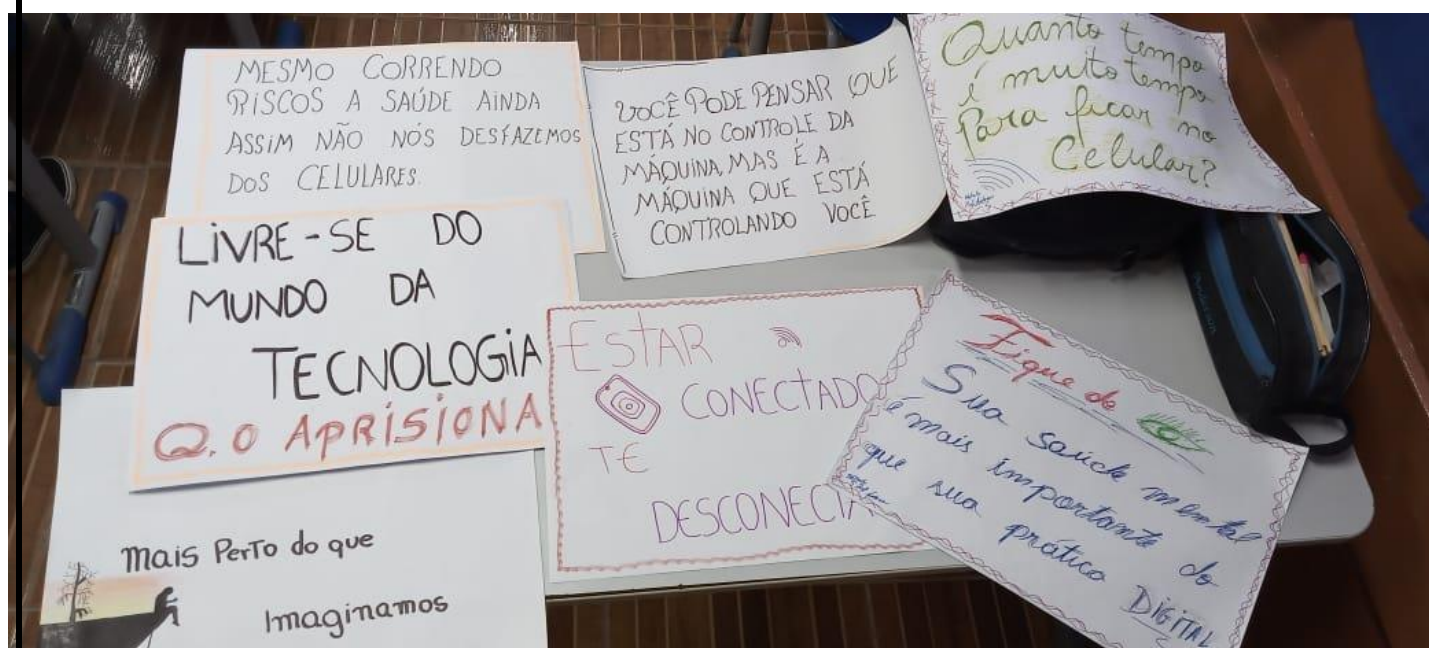 MESMO CORRENDO
RISCOS A SAÚDE AINDA
ASSIM NÃO NÓS DESFAZEMOS
DOS CELULARES.
VOCÊ PODE PENSAR QUE
ESTÁ NO CONTROLE DA
MÁQUINA, MAS É A
MÁQUINA QUE ESTÁ
CONTROLANDO VOCÊ
Quanto tempo
é muito tempo
Para ficar no
Celular?
LIVRE-SE DO
MUNDO DA
TECNOLOGIA
Q.O APRISIONA
ESTAR
CONECTADO
TE
DESCONECTA
Fique de
Sua saúde mental
é mais importante do
que sua prática
DIGITAL
Mais Perto do que
Imaginamos